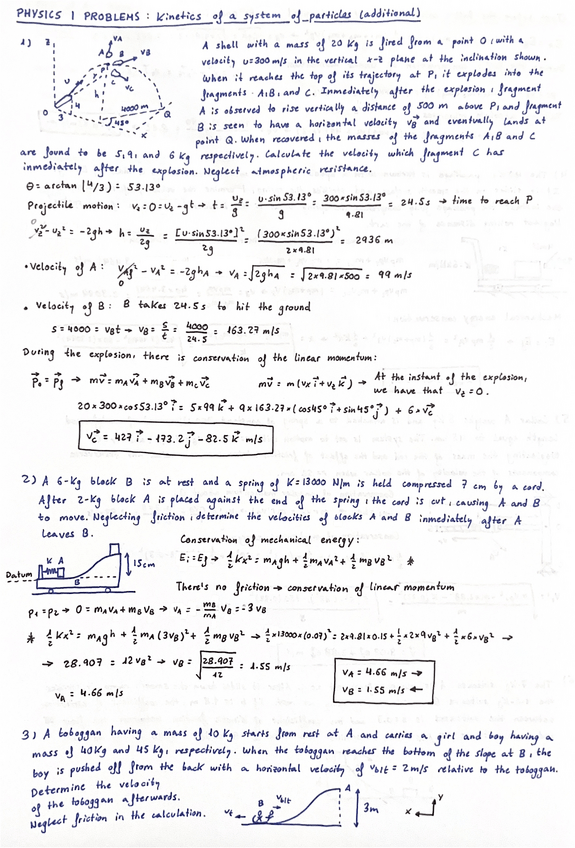 PHYSICS I PROBLEMS: Kinetics of a system of particles (additional)
1)
A shell with a mass of 20 Kg is fired from a point O, with a
velocity u=300 m/s in the vertical x-z plane at the inclination shown.
When it reaches the top of its trajectory at P, it explodes into the
fragments A, B, and C. Inmediately after the explosion, fragment
A is observed to rise vertically a distance of 500 m above P, and fragment
B is seen to have a horizontal velocity vB and eventually lands at
point Q. When recovered, the masses of the fragments A, B and C
are found to be 5, 9, and 6 Kg respectively. Calculate the velocity which fragment C has
inmediately after the explosion. Neglect atmospheric resistance.
z A vA B vB P C vC u h 4000 m O 3 4 45° Q x
θ = arctan (4/3) = 53.13°
Projectile motion: vz = 0 = uz - gt → t = uz/g = u·sin53.13°/g = 300×sin53.13°/9.81 = 24.5s → time to reach P
vz² - uz² = -2gh → h = uz²/2g = [u·sin53.13°]²/2g = (300×sin53.13°)²/2×9.81 = 2936 m
• Velocity of A: vAf² - vA² = -2ghA → vA = √2ghA = √2×9.81×500 = 99 m/s
• Velocity of B: B takes 24.5 s to hit the ground
s = 4000 = vBt → vB = s/t = 4000/24.5 = 163.27 m/s
During the explosion, there is conservation of the linear momentum:
P0 = Pf → mv = mAvA + mBvB + mCvC mv = m(vx i + vz k) → At the instant of the explosion,
we have that vz = 0.
20×300×cos53.13° i = 5×99 k + 9×163.27×(cos45° i + sin45° j) + 6×vC
vC = 427 i - 173.2 j - 82.5 k m/s
2) A 6-Kg block B is at rest and a spring of K=13000 N/m is held compressed 7 cm by a cord.
After 2-Kg block A is placed against the end of the spring, the cord is cut, causing A and B
to move. Neglecting friction, determine the velocities of blocks A and B inmediately after A
leaves B.
K A 15cm Datum B
Conservation of mechanical energy:
Ei = Ef → 1/2 Kx² = mAgh + 1/2 mAvA² + 1/2 mBvB² *
There's no friction → conservation of linear momentum
P1 = P2 → 0 = mAvA + mBvB → vA = - mB/mA vB = -3 vB
* 1/2 Kx² = mAgh + 1/2 mA(3vB)² + 1/2 mBvB² → 1/2×13000×(0.07)² = 2×9.81×0.15 + 1/2×2×9vB² + 1/2×6×vB² →
→ 28.907 = 12vB² → vB = √28.907/12 = 1.55 m/s
vA = 4.66 m/s
vA = 4.66 m/s →
vB = 1.55 m/s ←
3) A toboggan having a mass of 10 Kg starts from rest at A and carries a girl and boy having a
mass of 40Kg and 45 Kg, respectively. When the toboggan reaches the bottom of the slope at B, the
boy is pushed off from the back with a horizontal velocity of vb/t = 2m/s relative to the toboggan.
Determine the velocity
of the toboggan afterwards.
Neglect friction in the calculation.
vt B vb/t A 3m x y